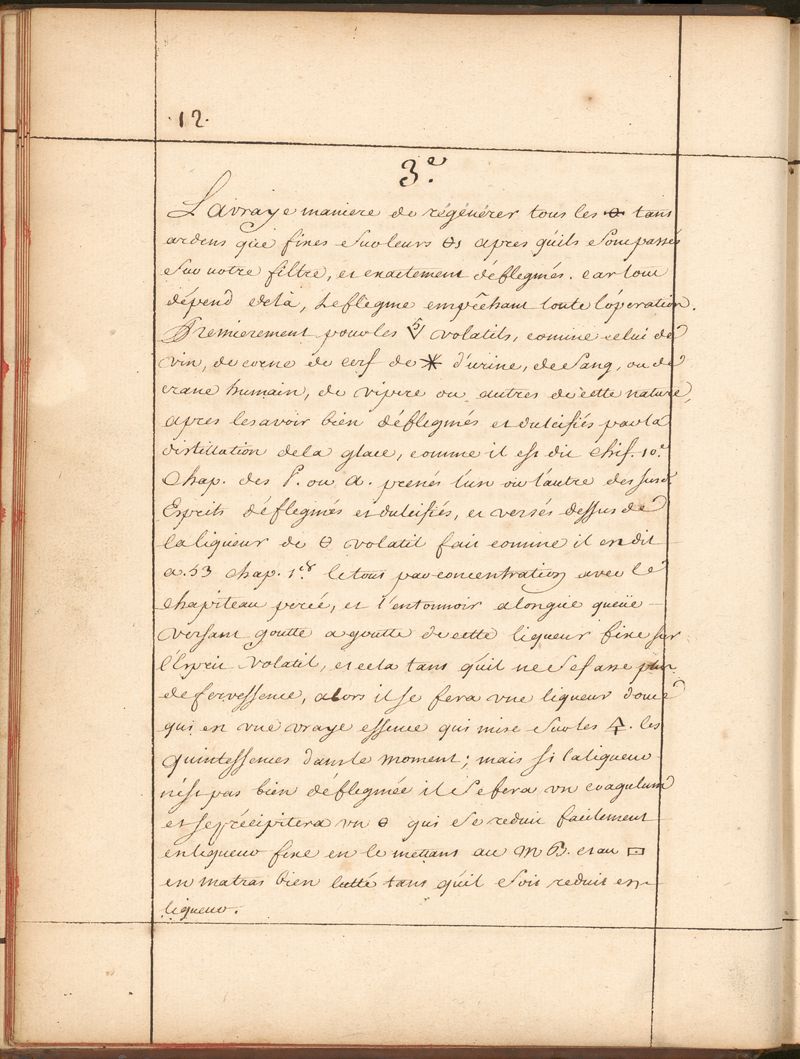 .12.
3.e
Lavraye maniere de régénérer tous les 🜔 tans
ardens que fixes Sur leurs 🜔s apres qu'ils Sompassés
Sur notre filtre, et exactement déflegmés. car tout
dépend delà, Leflegme empêchant toute l'opération.
Premierement pour les volatils, comme celui de
vin, de corne de cerf de 🞶 d'urine, de Sang, ou de
crane humain, de vipere ou autres de cette nature,
apres les avoir bien déflegmés et dulcifiés par la
distillation dela glace, comme il est dit Chif. 10.e
Chap. des P. ou a. prenés l'un ou l'autre des susd.
Esprits déflegmés et dulcifiés, et versés dessus de
la liqueur de 🜔 volatil fait comme il en dit
a. 53 Chap. 1.er le tout par concentration avec le
chapiteau percée, et l'entonnoir alongüe queüe
versant goutte agoutte de cette liqueur fixe sur
l'Esprit volatil, et cela tans qu'il ne Se fasse plus
defervessence, alors il se fera vne liqueur douce
qui en vne vraye essence qui mise Sur les 🜍. les
quintessences dans le moment; mais si la liqueur
n'est pas bien déflegmée il Se fera vn coagulum
et se précipitera vn 🜔 qui Se reduit facilement
en liqueur fixe en le mettans au M B. et au 🝕
en matras bien lutté tans qu'il Soit reduit en
liqueur.